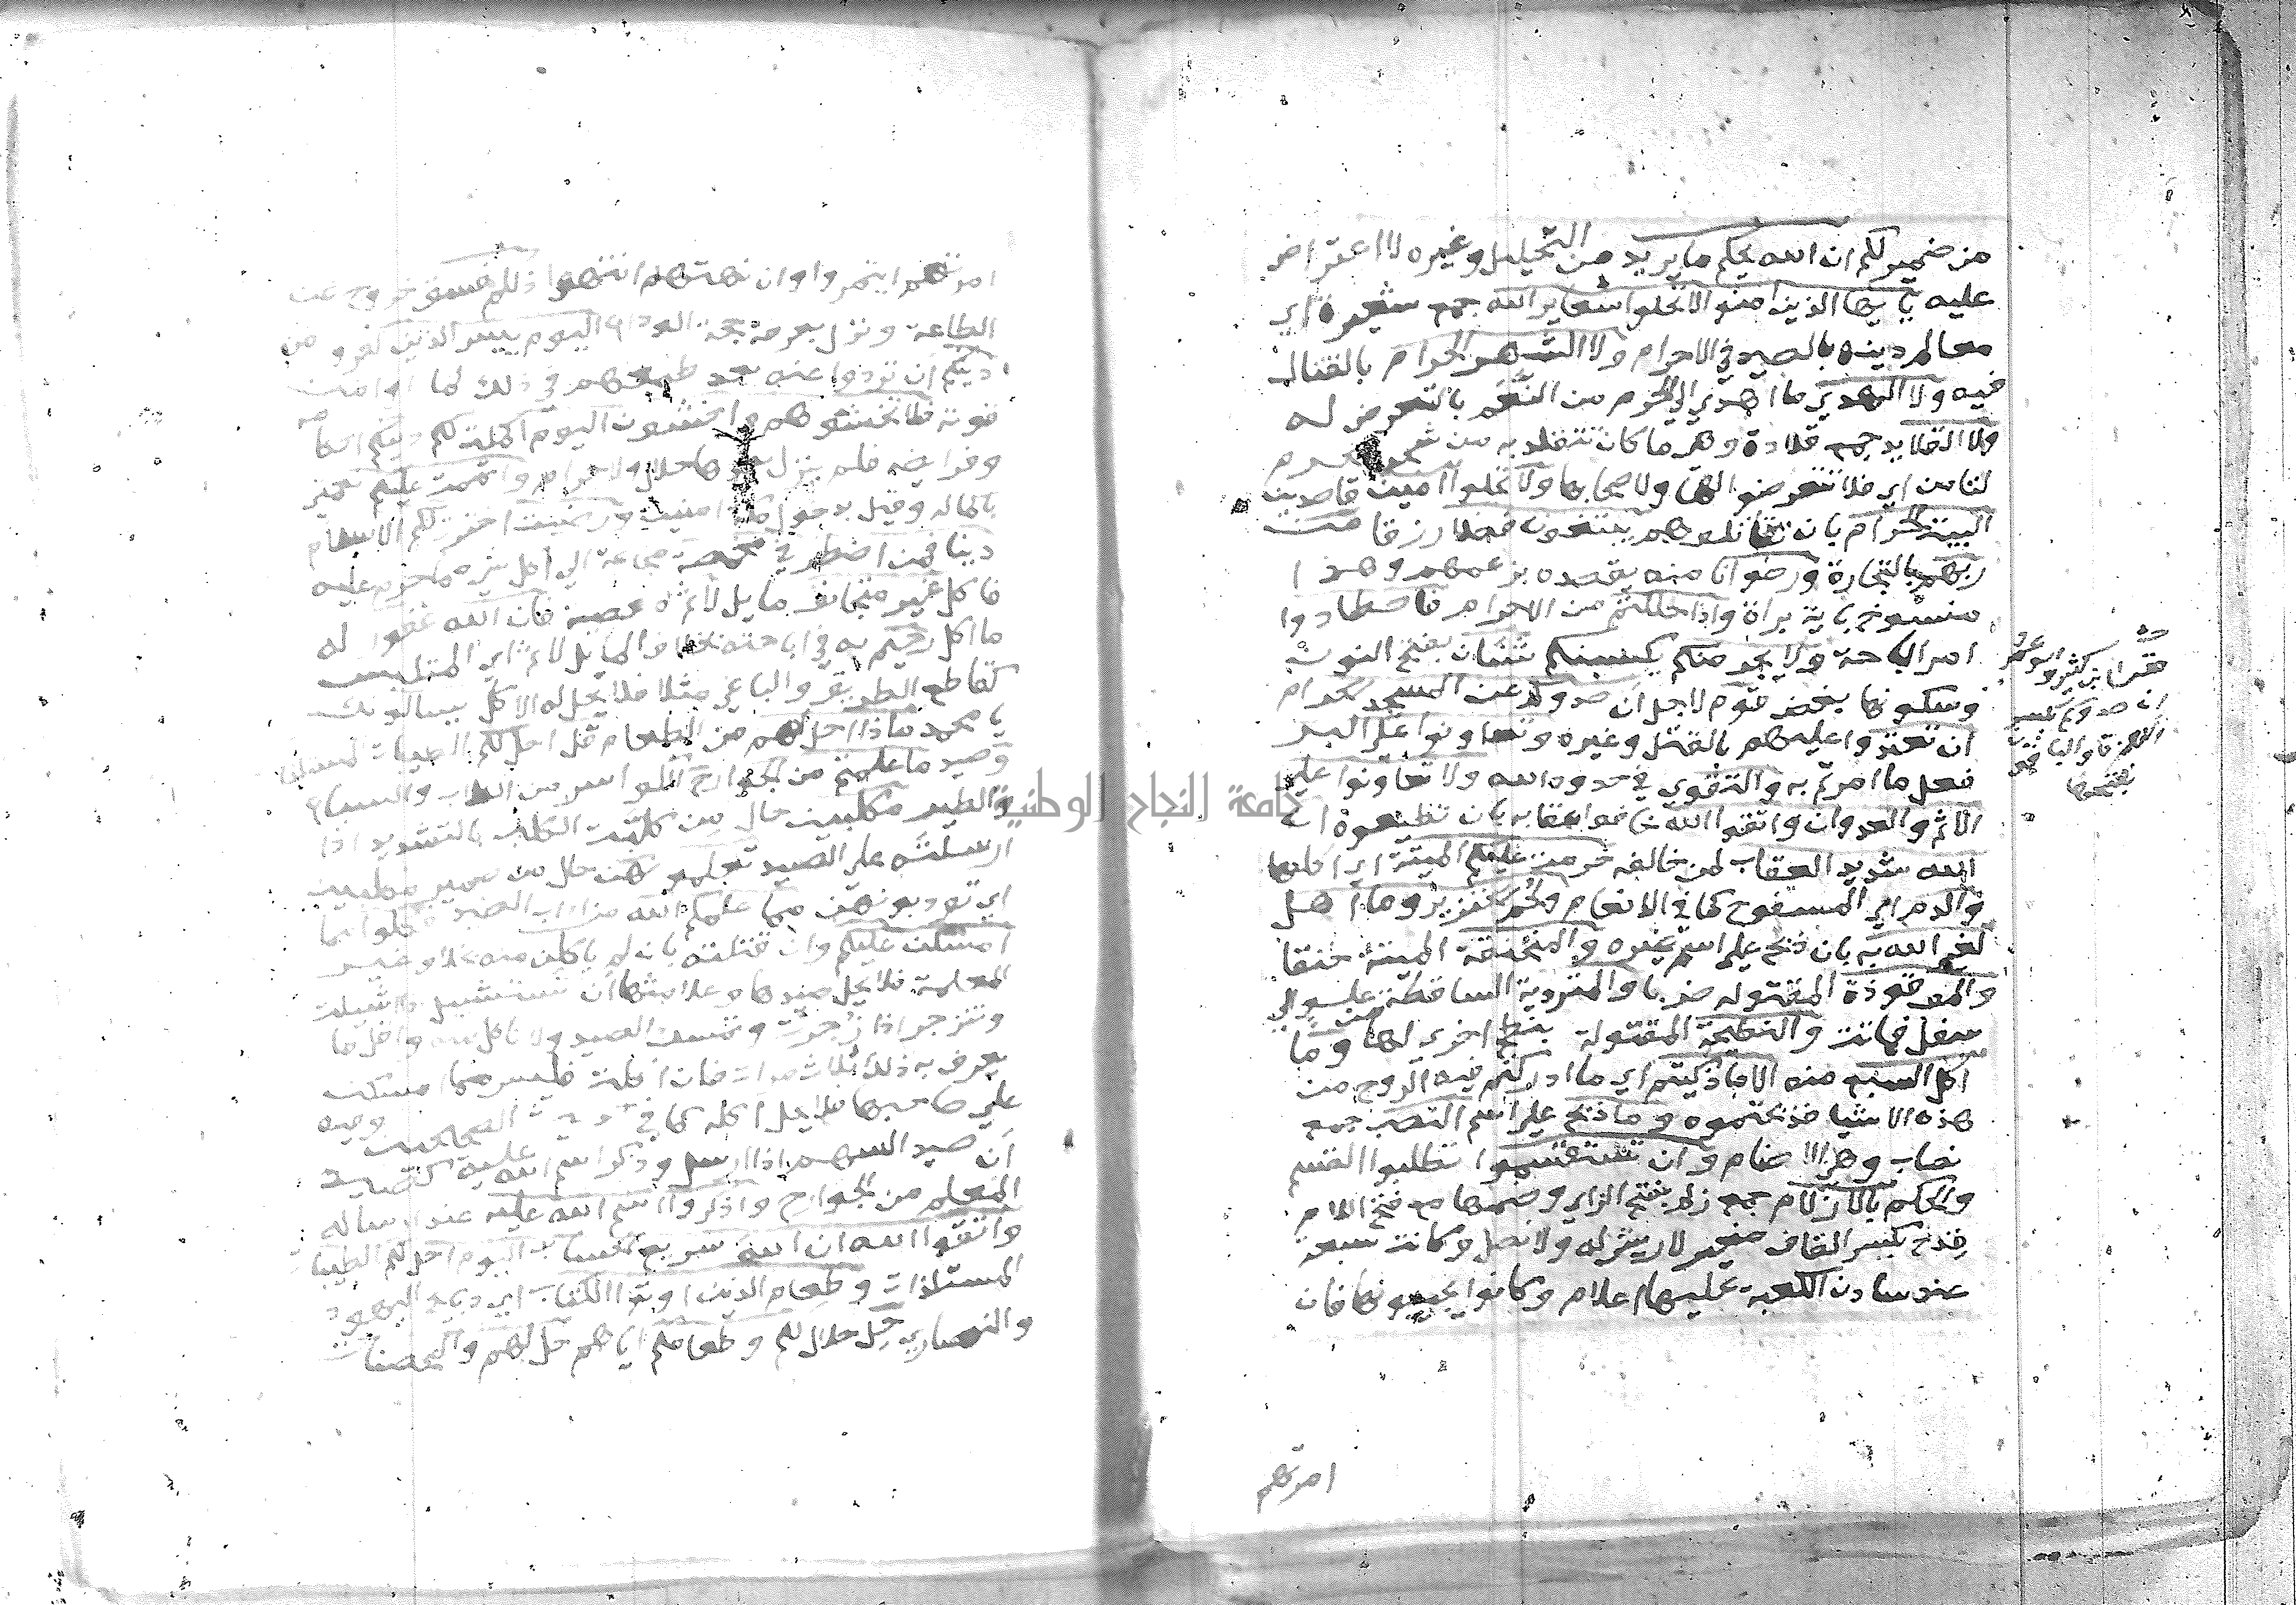 من ضمير لكم ان الله يحكم ما يريد من التحليل وغيره لا اعتراض
عليه يايها الذين امنوا لا تحلوا شعاير الله جمع شعيرة اي
معالم دينه بالصيد في الاحرام ولا الشهر الحرام بالقتال
فيه ولا الهدي ما اهدي الي الحرم من النعم بالتعرض له
ولا القلايد جمع قلادة وهي ما كان تتقلد به من شجر الحرم
لتامن اي فلا تتعرضوا لها ولا صحابها ولا تحلوا امين قاصدين
البيت الحرام بان تقاتلوهم يبتغون فضلا رزقا من
ربهم بالتجارة ورضوانا منه بقصده بزعمهم وهذا
منسوخ باية براة واذا حللتم من الاحرام فاصطادوا
امر اباحة ولا يجرمنكم يكسبنكم شنئان بفتح النون
وسكونها بغض قوم لاجل ان صدوكم عن المسجد الحرام
ان تعتدوا عليهم بالقتل وغيره وتعاونوا علي البر
فعل ما امرتم به والتقوي في حدود الله ولا تعاونوا علي
الاثم والعدوان واتقوا الله خافوا عقابه بان تطيعوه ان
الله شديد العقاب لمن خالفه حرمت عليكم الميتة اي اكلها
والدم اي المسفوح كما في الانعام ولحم الخنزير وما اهل
لغير الله به بان ذبح علي اسم غيره والمنخنقة الميتة خنقا
والموقوذة المقتوله ضربا والمتردية الساقطة من علو الي
سفل فماتت والنطيحة المقتولة بنطح اخري لها وما
اكل السبع منه الا ما ذكيتم اي ما ادركتم فيه الروح من
هذه الاشيا فذبحتموه وما ذبح علي اسم النصب جمع
نصاب وهي الاصنام وان تستقسموا تطلبوا القسم
والحكم بالازلام جمع زلم بفتح الزاي وضمها مع فتح اللام
قدح بكسر القاف صغير لا ريش له ولا نصل وكانت سبعة
عند سادن الكعبة عليها اعلام وكانوا يجيبونها فان
امرتهم
قرا ابن كثير وابو عمرو
ان صدوكم بكسر
الهمزة والباقون
بفتحها
امرتهم ايتمروا وان نهتهم انتهوا ذلكم فسق خروج عن
الطاعة ونزل بعرفة حجة الوداع اليوم ييس الذين كفروا من
دينكم ان تردوا عنه بعد طمعهم في ذلك لما راوا من
قوته فلا تخشوهم واخشون اليوم اكملت لكم دينكم احكامه
وفرايضه فلم ينزل بعدها حلال ولا حرام واتممت عليكم نعمتي
باكماله وقيل بدخول مكة امنين ورضيت اخترت لكم الاسلام
دينا فمن اضطر في مخمصة مجاعة الي اكل شي مما حرم عليه
فاكل غير متجانف مايل لاثم معصية فان الله غفور له
ما اكل رحيم به في اباحته بخلاف المايل لاثم اي المتلبس
كقاطع الطريق والباغي مثلا فلا يحل له الاكل يسالونك
يا محمد ماذا احل لهم من الطعام قل احل لكم الطيبات المستلذات
وصيد ما علمتم من الجوارح الكواسب من الكلاب والسباع
والطير مكلبين حال من كلبت الكلب بالتشديد اذا
ارسلته علي الصيد تعلمونهن حال من ضمير مكلبين
اي تودبونهن مما علمكم الله من اداب الصيد فكلوا مما
امسكن عليكم وان قتلته بان لم ياكلن منه بخلاف غير
المعلمة فلا يحل صيدها وعلامتها ان تسترسل اذا ارسلت
وتنزجر اذا زجرت وتمسك الصيد ولا تاكل منه واقل ما
يعرف به ذلك ثلاث مرات فان اكلت فليس مما امسكن
علي صاحبها فلا يحل اكله كما في حديث الصحيحين وفيه
ان صيد السهم اذا ارسل وذكر اسم الله عليه كصيد
المعلم من الجوارح واذكروا اسم الله عليه عند ارساله
واتقوا الله ان الله سريع الحساب اليوم احل لكم الطيبات
المستلذات وطعام الذين اوتوا الكتاب اي ذبايح اليهود
والنصاري حل حلال لكم وطعامكم اياهم حل لهم والمحصنات
جامعة النجاح الوطنية